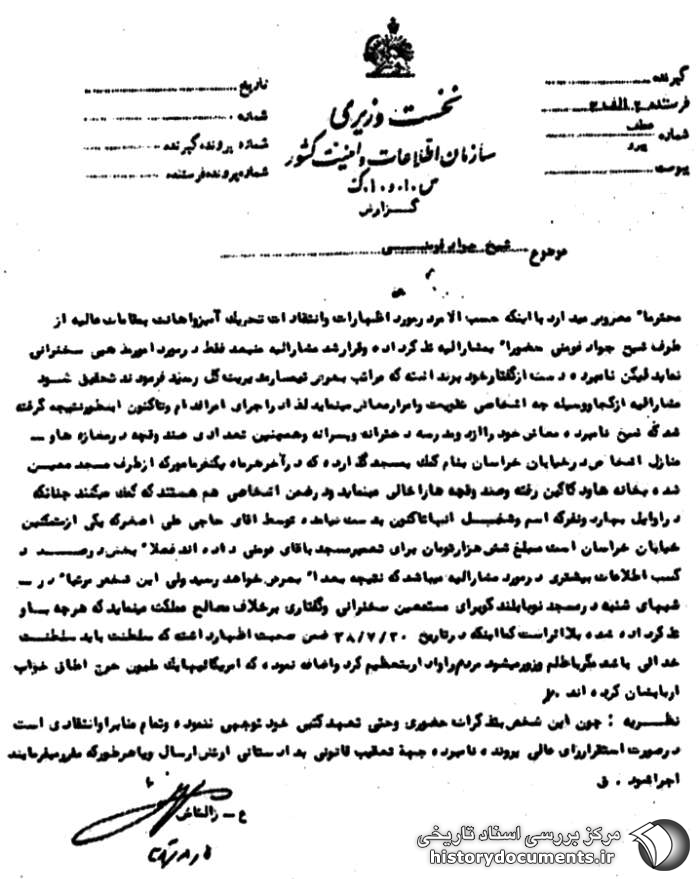 گیرنده
فرستنده ۳ الف ۲
شماره عطف
پیرو
پیوست
نخست وزیری
سازمان اطلاعات و امنیت کشور
س.ا.و.ا.ک
گزارش
تاریخ
شماره
شماره پرونده گیرنده
شماره پرونده فرستنده
موضوع شیخ جواد فومنی
محترما" معروض میدارد با اینکه حسب الامر در مورد اظهارات و انتقادات تحریک آمیز و اهانت بمقامات عالیه از
طرف شیخ جواد فومنی حضورا" بمشارالیه تذکر داده و قرار شد مشارالیه منبعد فقط در مورد امور مذهبی سخنرانی
نماید لیکن نامبرده دست از گفتار خود برنداشته که مراتب بعرض تیمسار مدیریت کل رسید فرمودند تحقیق شود
مشارالیه از کجا و بوسیله چه اشخاصی تقویت و امرار معاش مینماید لذا در اجرای امر اقدام و تاکنون اینطور نتیجه گرفته
شد که شیخ نامبرده معاش خود را از دو مدرسه دخترانه و پسرانه و همچنین تعدادی صندوقچه در مغازه ها و ــ
منازل اشخاص در خیابان خراسان بنام کمک بمسجد گذارده که در آخر هر ماه یکنفر مامور که از طرف مسجد معین
شده بخانه ها و دکاکین رفته و صندوقچه ها را خالی مینماید و در ضمن اشخاصی هم هستند که کمک میکنند چنانکه
در اوایل بهار دو نفر که اسم و شغل آنها تاکنون بدست نیامده توسط اقای حاجی علی اصغر که یکی از متمکنین
خیابان خراسان است مبلغ شش هزار تومان برای تعمیر مسجد باقای فومنی داده اند فعلا" بخش در صدد
کسب اطلاعات بیشتری در مورد مشارالیه میباشد که نتیجه بعدا" بعرض خواهد رسید ولی این شخص مرتبا" در ــ
شبهای شنبه در مسجد نو با بلندگو برای مستمعین سخنرانی و گفتاری برخلاف مصالح مملکت مینماید که هر چه باو
تذکر داده شده بلااثر است کما اینکه در تاریخ ۳۸/۷/۳۰ ضمن صحبت اظهار داشته که سلطنت باید سلطنت
خدائی باشد مگر با ظلم و زور میشود مردم را وادار بتعظیم کرد و اضافه نموده که امریکائیها یک ملیون خرج اطاق خواب
اربابشان کرده اند
نظریه : چون این شخص بتذکرات حضوری و حتی تعهد کتبی خود توجهی ننموده و تمام منابر او انتقادی است
در صورت استقرار رای عالی پرونده نامبرده جهة تعقیب قانونی بدادستانی ارتش ارسال و یا هر طور که مقرر میفرمایند
اجرا شود . ق
مرکز بررسی اسناد تاریخی
historydocuments.ir